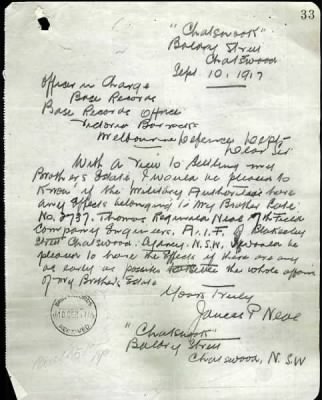 33
"Chatswook"
Baldry Street
Chatswood
Sept 10. 1917
Officer in Charge
Base Records
Base Records Office
Victoria Barracks
Melbourne Defence Dept
Dear Sir
With a view to Settling my
Brother's Estate, I would be pleased to
Know if the Military Authorities have
any Effects belonging to My Brother Late
No. 2737. Thomas Reginald Neae 7th Field
Company Engineers. A.I.F of
Street Chatswood. Sydney. N.S.W. I would be
pleased to have the Effects if there are any
as early as possible to settle the whole affairs
of my Brother's Estate
Yours Truly
James P Neae
"Chatswook"
Baldry Street
Chatswood, N.S.W
RECEIVED